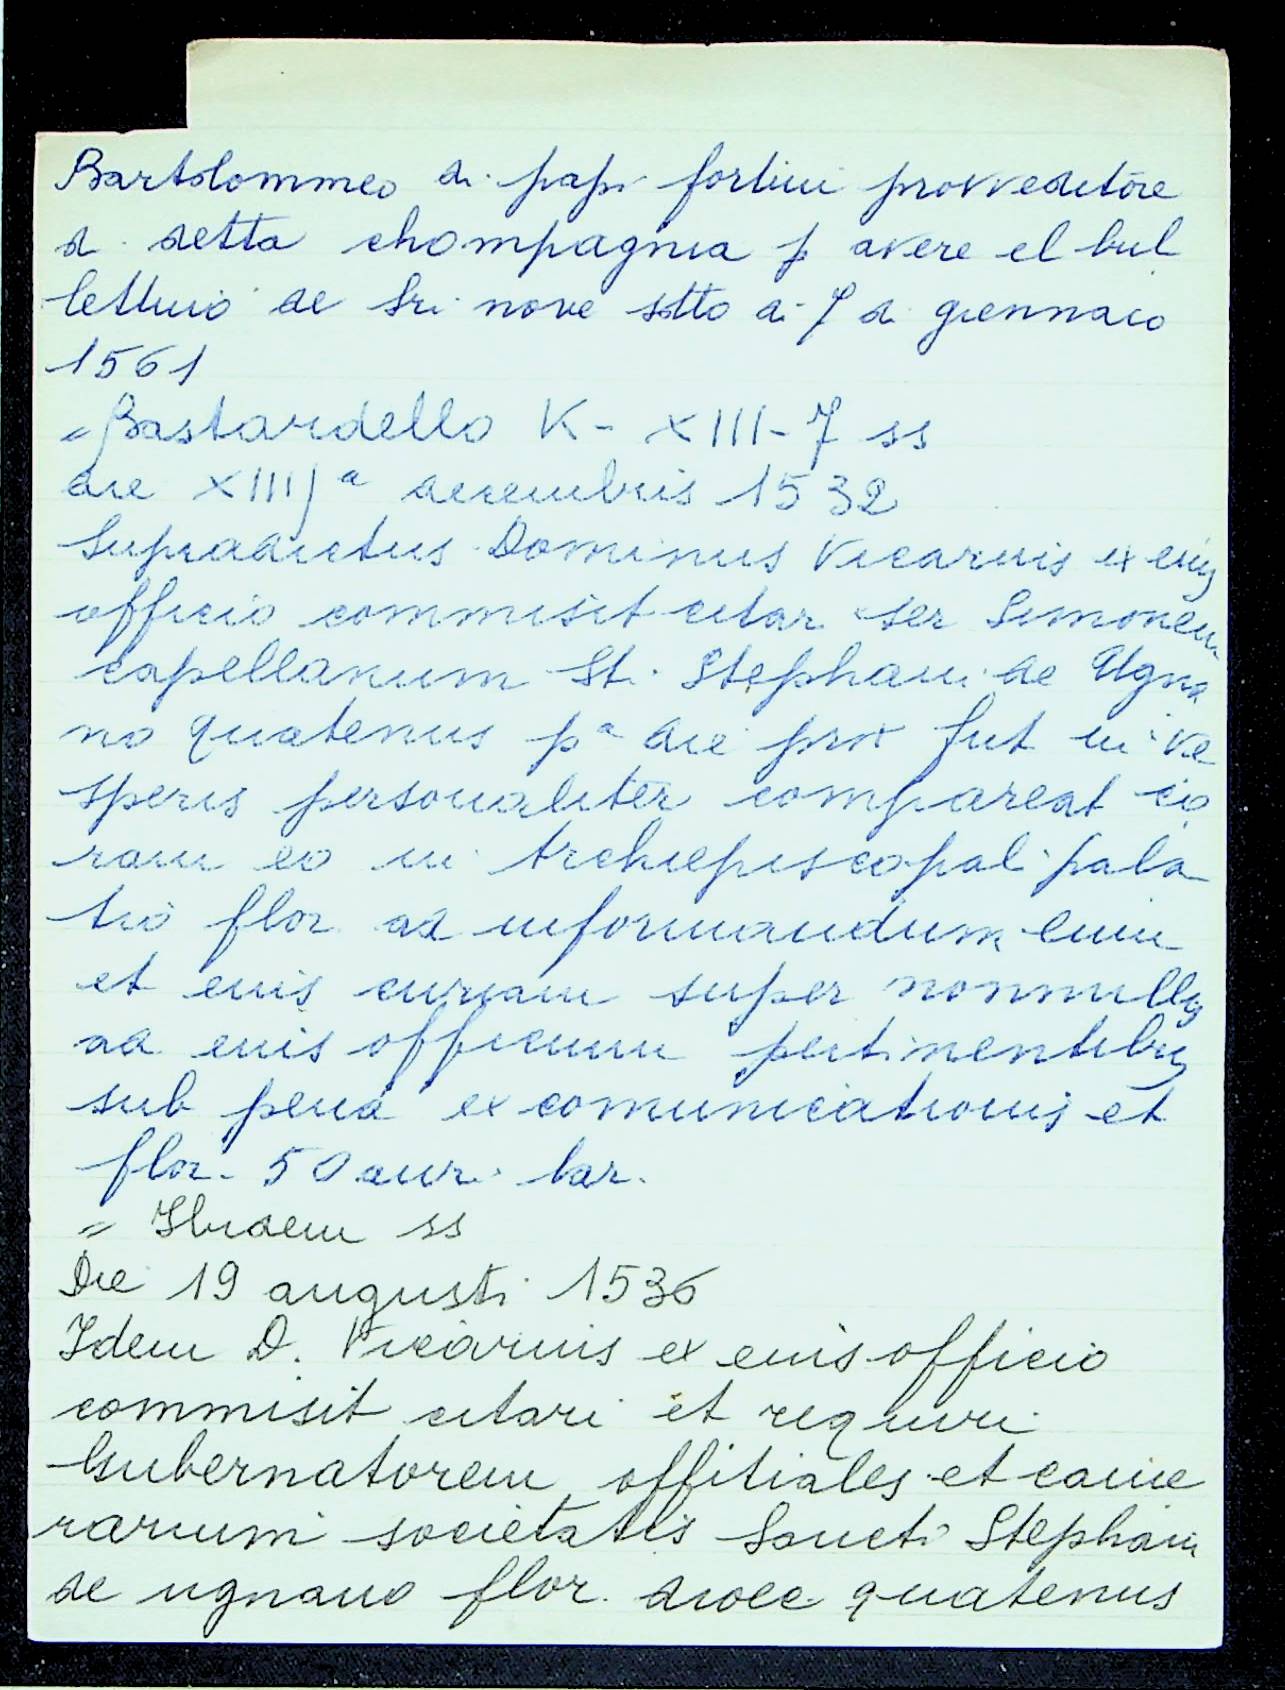 Bartolommeo di papi fortini provveditore
di detta chompagnia p avere el bul
lettino de Sri nove sotto di 7 di giennaio
1561
" Bastardello K - XIII - 7 ss
die XIIIJª decembris 1532
Supradictus Dominus Vicarius ex eius
officio commisit citar ser Simonem
capellanum Sti Stephani de Ugna
no quatenus pª die prox fut in ve
speris personaliter compareat co
ram eo in Archiepiscopali pala
tio flor ad informandum eum
et eius curiam super nonnullis
ad eius officium pertinentibus
sub pena excomunicationis et
flor. 50 auri lar.
" Ibidem ss
Die 19 augusti 1536
Idem D. Vicarius ex eius officio
commisit citari et requiri
Gubernatorem offitiales et came
rarium societatis Sancti Stephani
de ugnano flor. dioec. quatenus